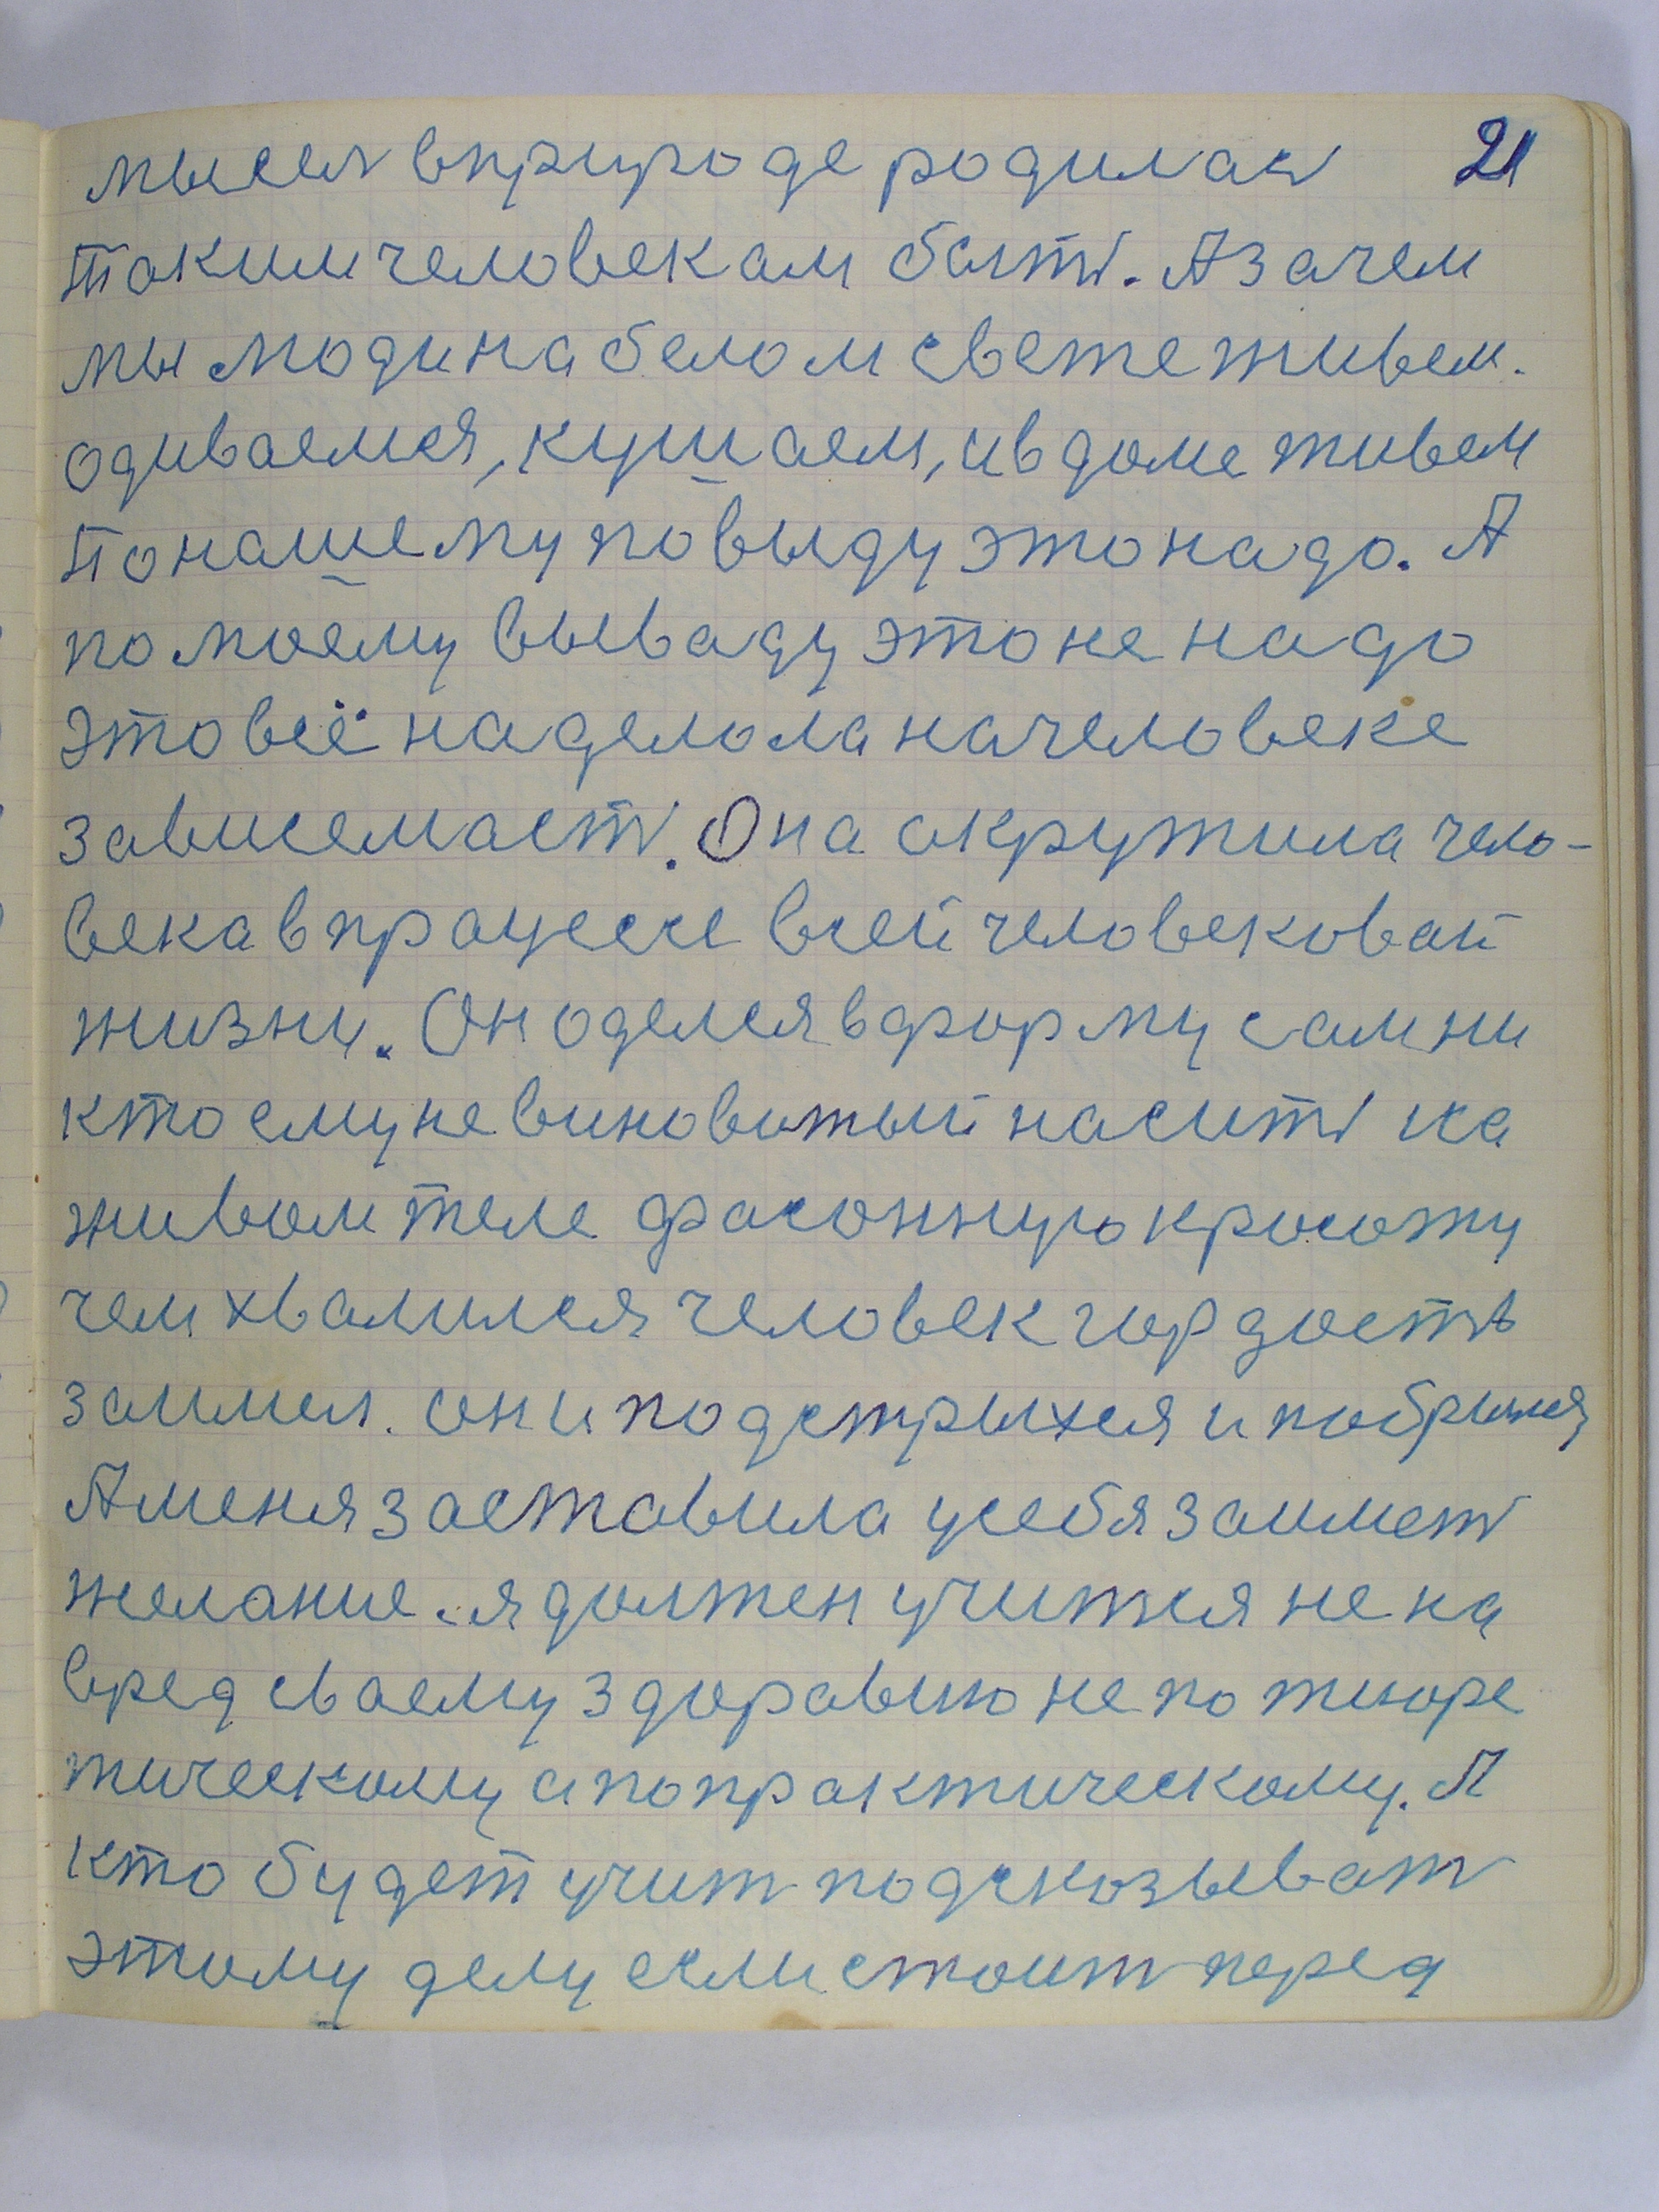 мысел в природе родилась 21
таким человекам быть. А зачем
мы люди на белом свете живем.
одиваемся, кушаем, и в доме живем
По нашему повыду это надо. А
по моему вываду это не надо
это всё наделола на человеке
зависемасть. Она окружила чело-
века в працессе всей человековай
жизни. Он оделся в форму сам ни
кто ему не виноватый насить на
живом теле фасонную красоту
чем хвалился человек гордость
заимел. он и подстрыхся и побрился
А меня заставила у себя заиметь
желание. я должен учится не на
вред сваему здоравию не по тиоре
тическому а по практическому. А
кто будет учить подсказывать
этому делу если стоить перед